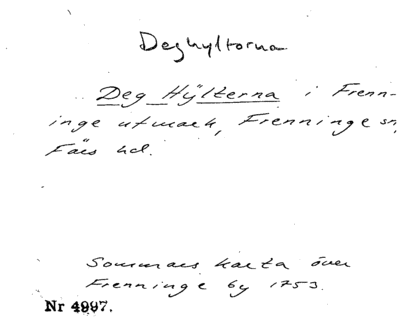 Deghyltorna
Deg Hÿlterna i Frenn-
inge utmark, Frenninge sn,
Färs hd.
Sommars karta över
Frenninge by 1753.
Nr 4997.